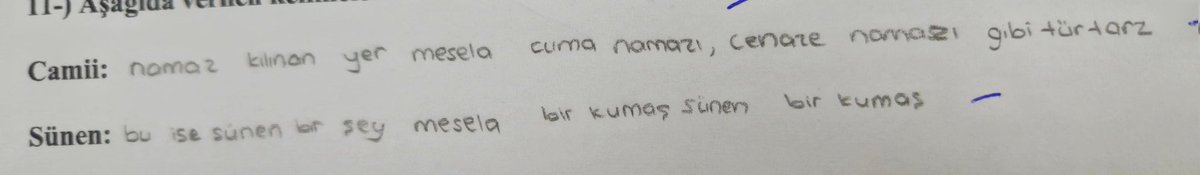 11-) Aşağıda verilen
Camii: namaz kılınan yer mesela cuma namazı, cenaze namazı gibi tür tarz
Sünen: bu ise sünen bir şey mesela bir kumaş sünen bir kumaş